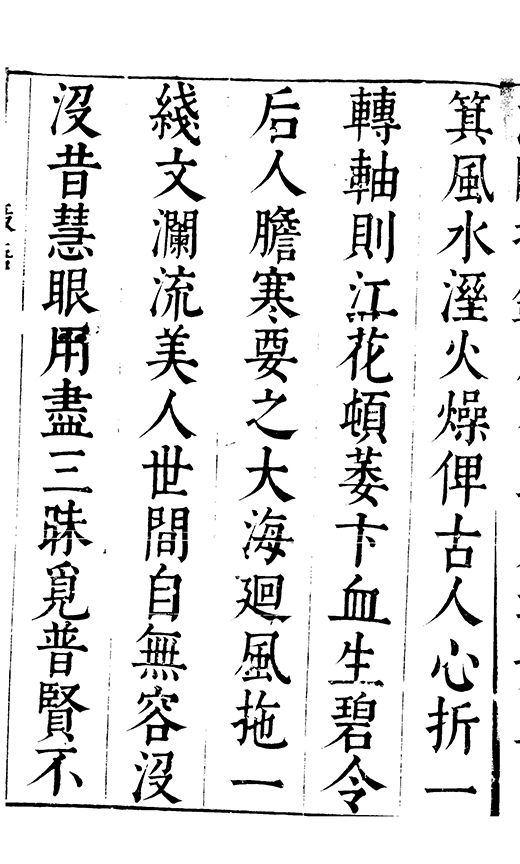 箕風水溼火燥俾古人心折一
轉軸則江花頓萎卞血生碧令
后人膽寒要之大海廻風拖一
綫文瀾流美人世間自無容沒
沒昔慧眼用盡三昧覓普賢不